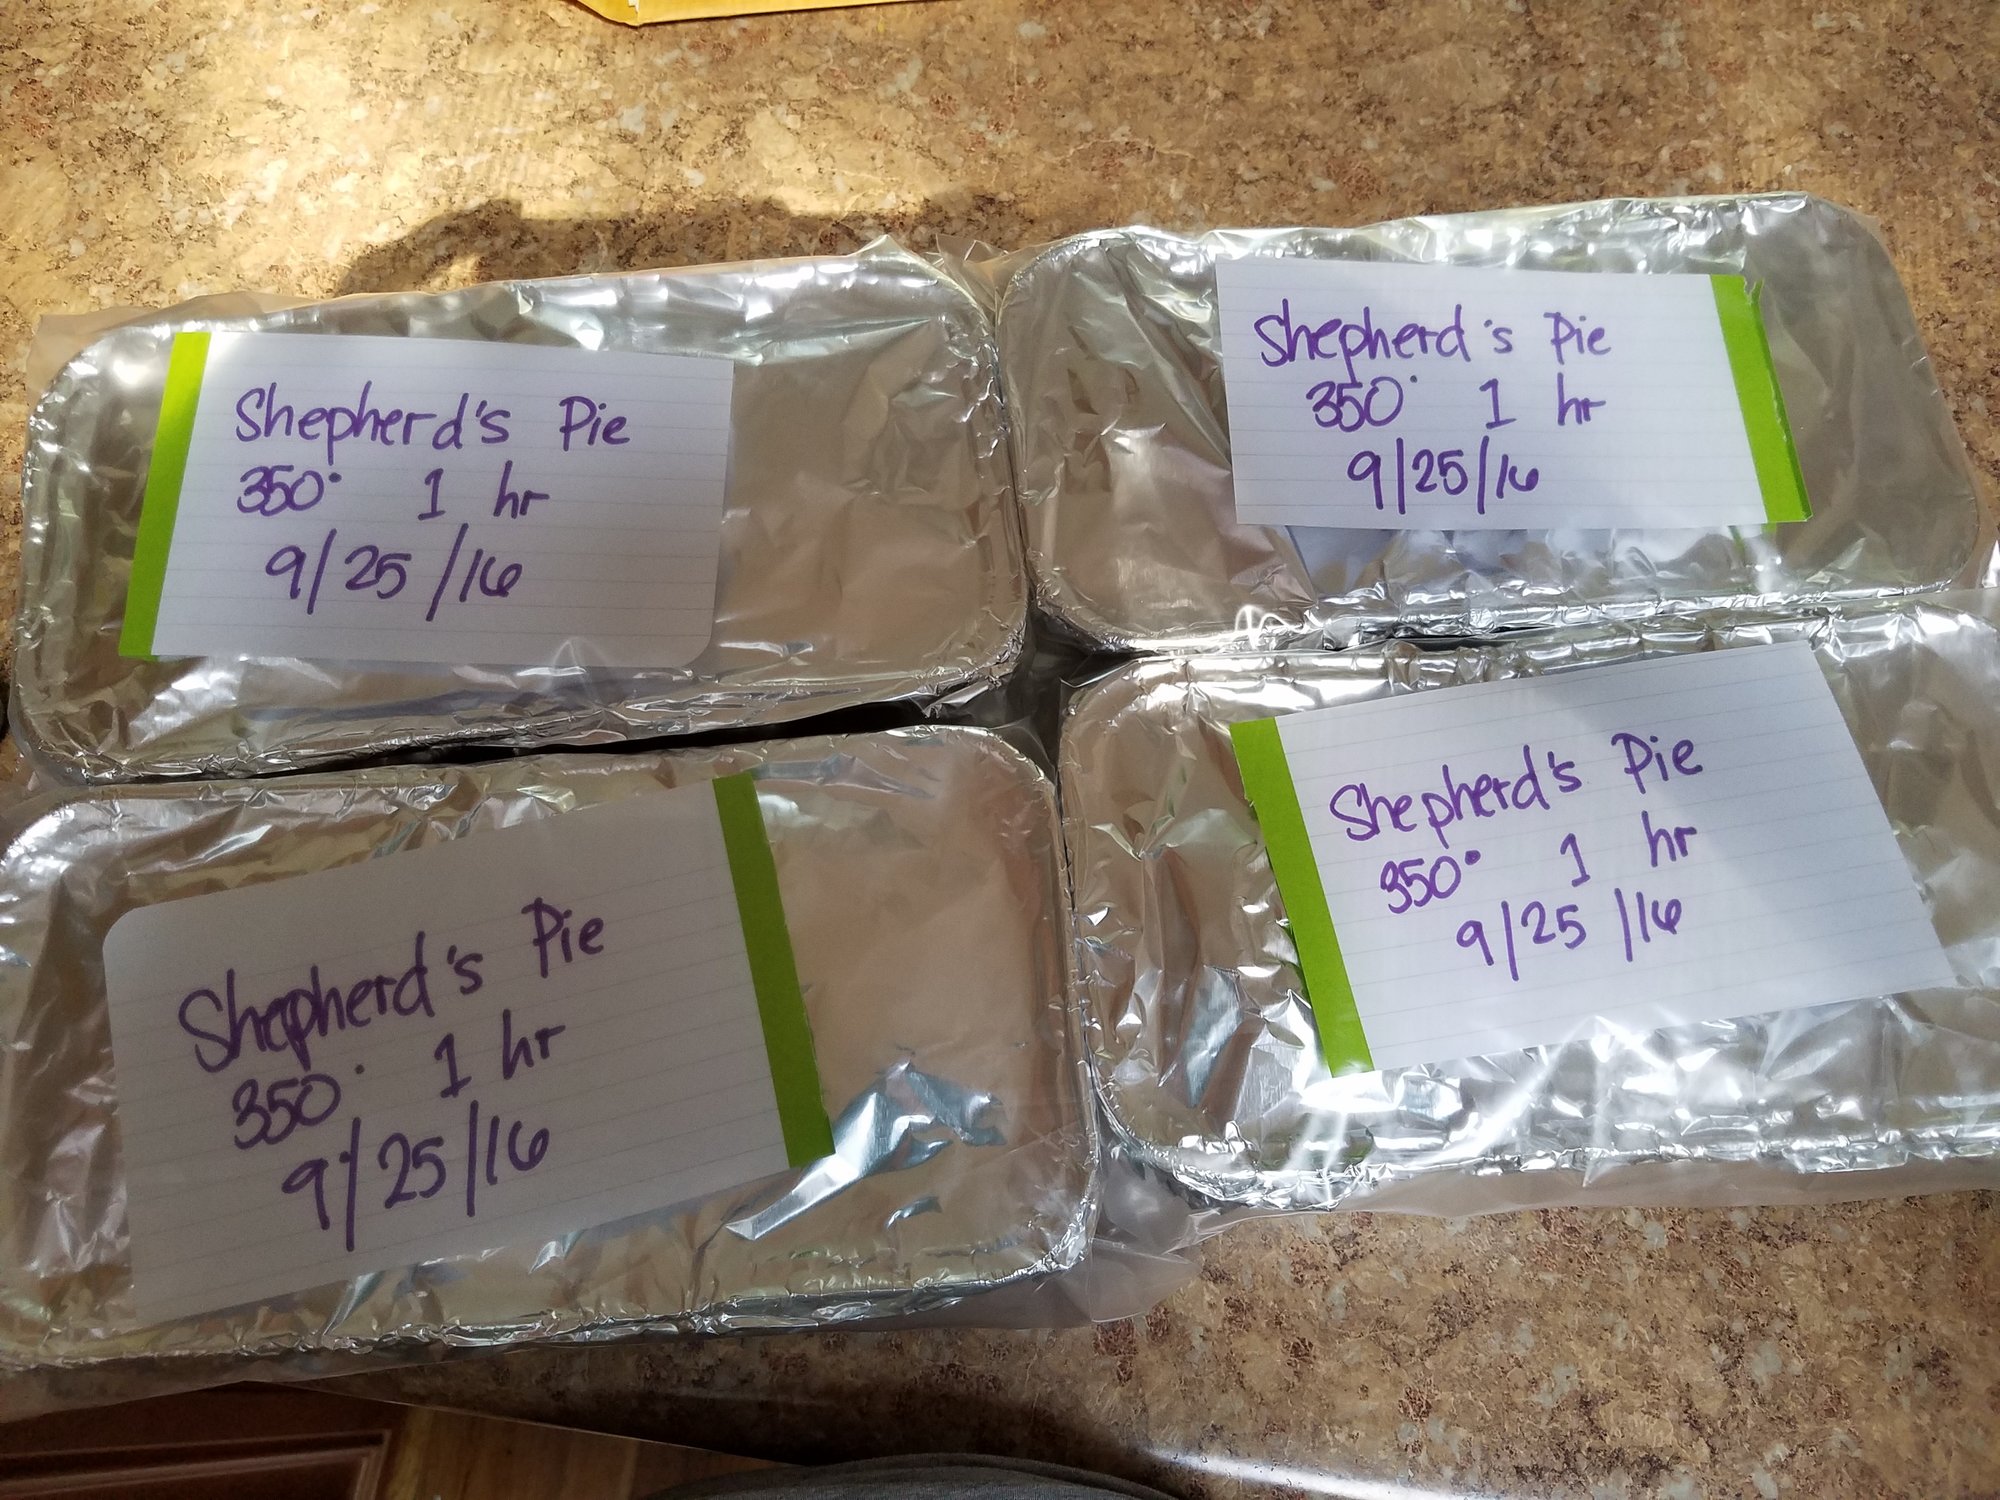 Shepherd's Pie
350° 1 hr
9/25/16
Shepherd's Pie
350° 1 hr
9/25/16
Shepherd's Pie
350° 1 hr
9/25/16
Shepherd's Pie
350° 1 hr
9/25/16